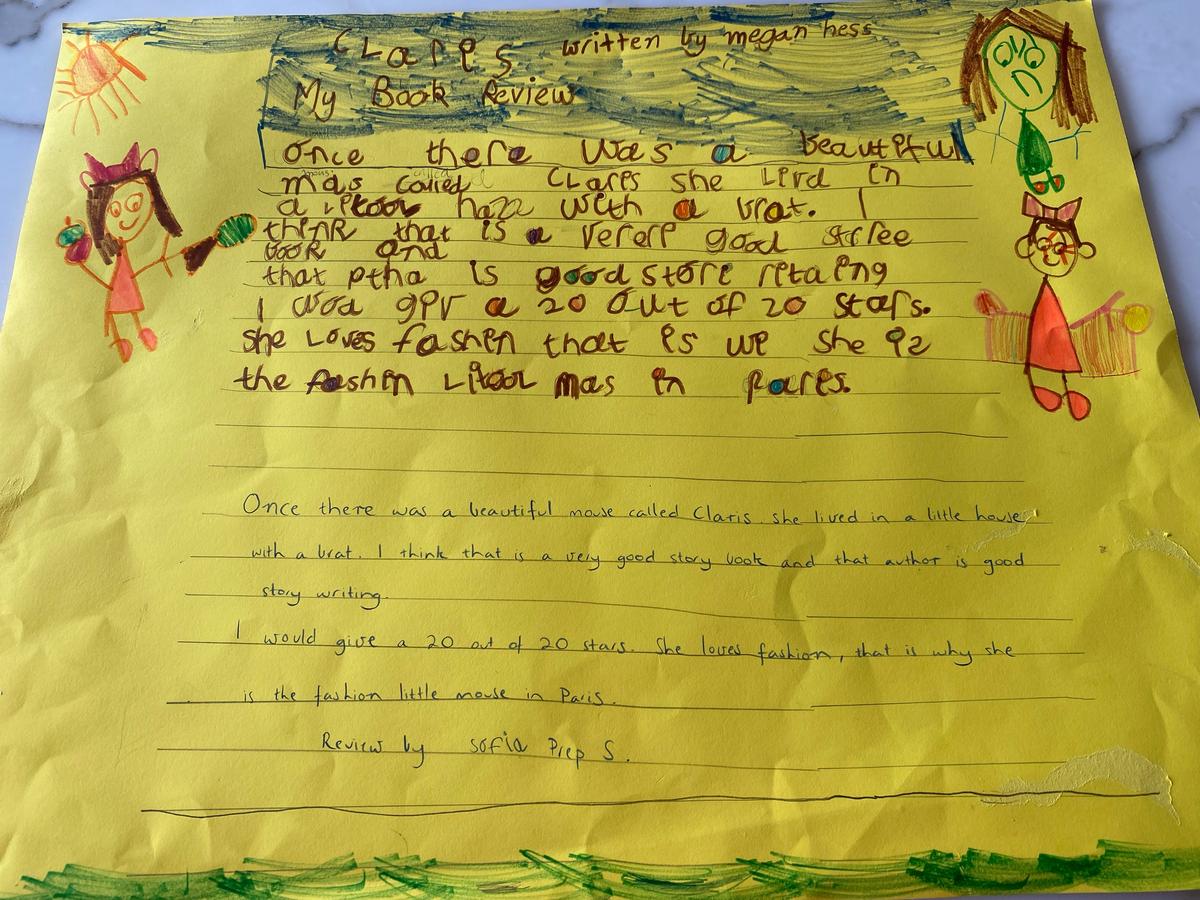 Clares written by megan hess
My Book Review
Once there was a beautiful
mas called Clares she Livd in
a litool haza with a brat. I
thinR that is a verere good stree
book and
that ptha is good store retaing
I wod gev a 20 out of 20 stars.
she Loves fashen that is we she is
the fashen Litool mas in pares.
Once there was a beautiful mouse called Claris. she lived in a little house
with a brat. I think that is a very good story book and that author is good
story writing.
I would give a 20 out of 20 stars. She loves fashion, that is why she
is the fashion little mouse in Paris.
Review by sofia Prep S.